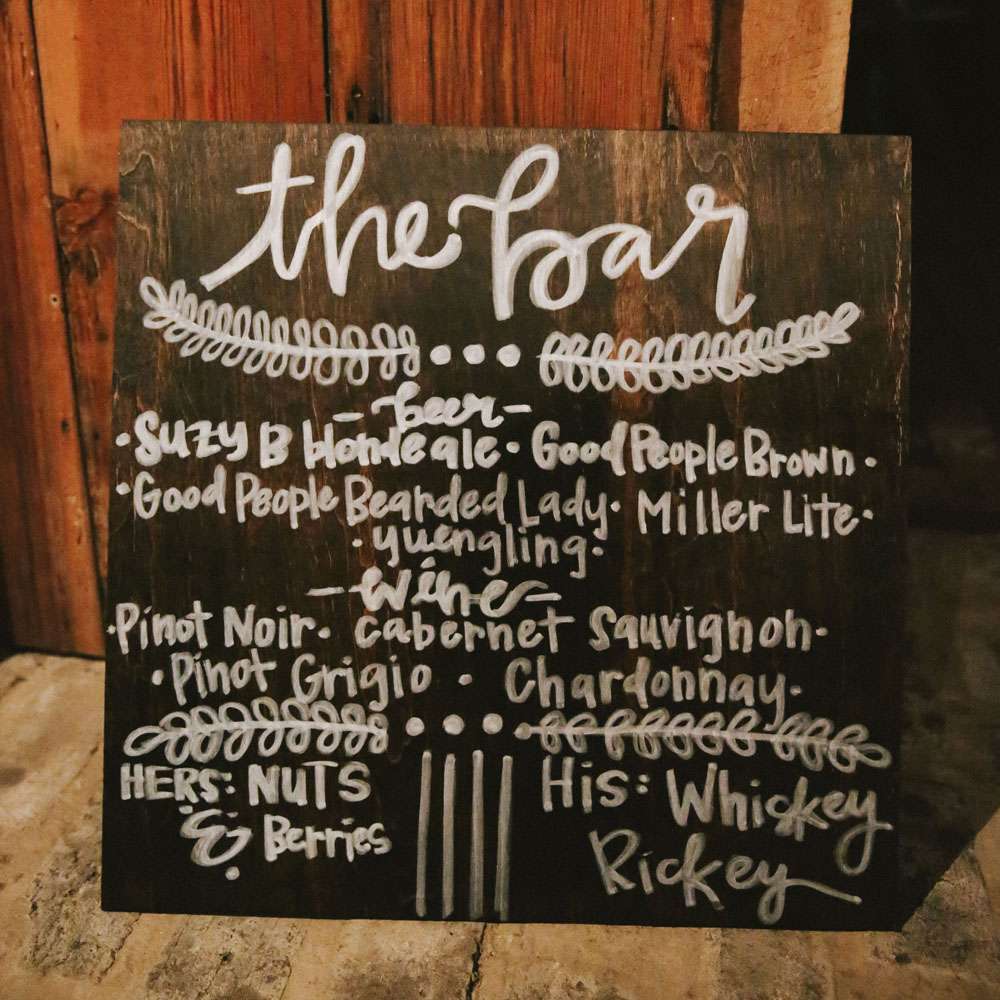 the bar
- beer -
· Suzy B blonde ale · Good People Brown ·
· Good People Bearded Lady · Miller Lite ·
· yuengling ·
- wine -
· Pinot Noir · cabernet Sauvignon ·
· Pinot Grigio · Chardonnay ·
HERS: NUTS
& Berries
His: Whickey
Rickey